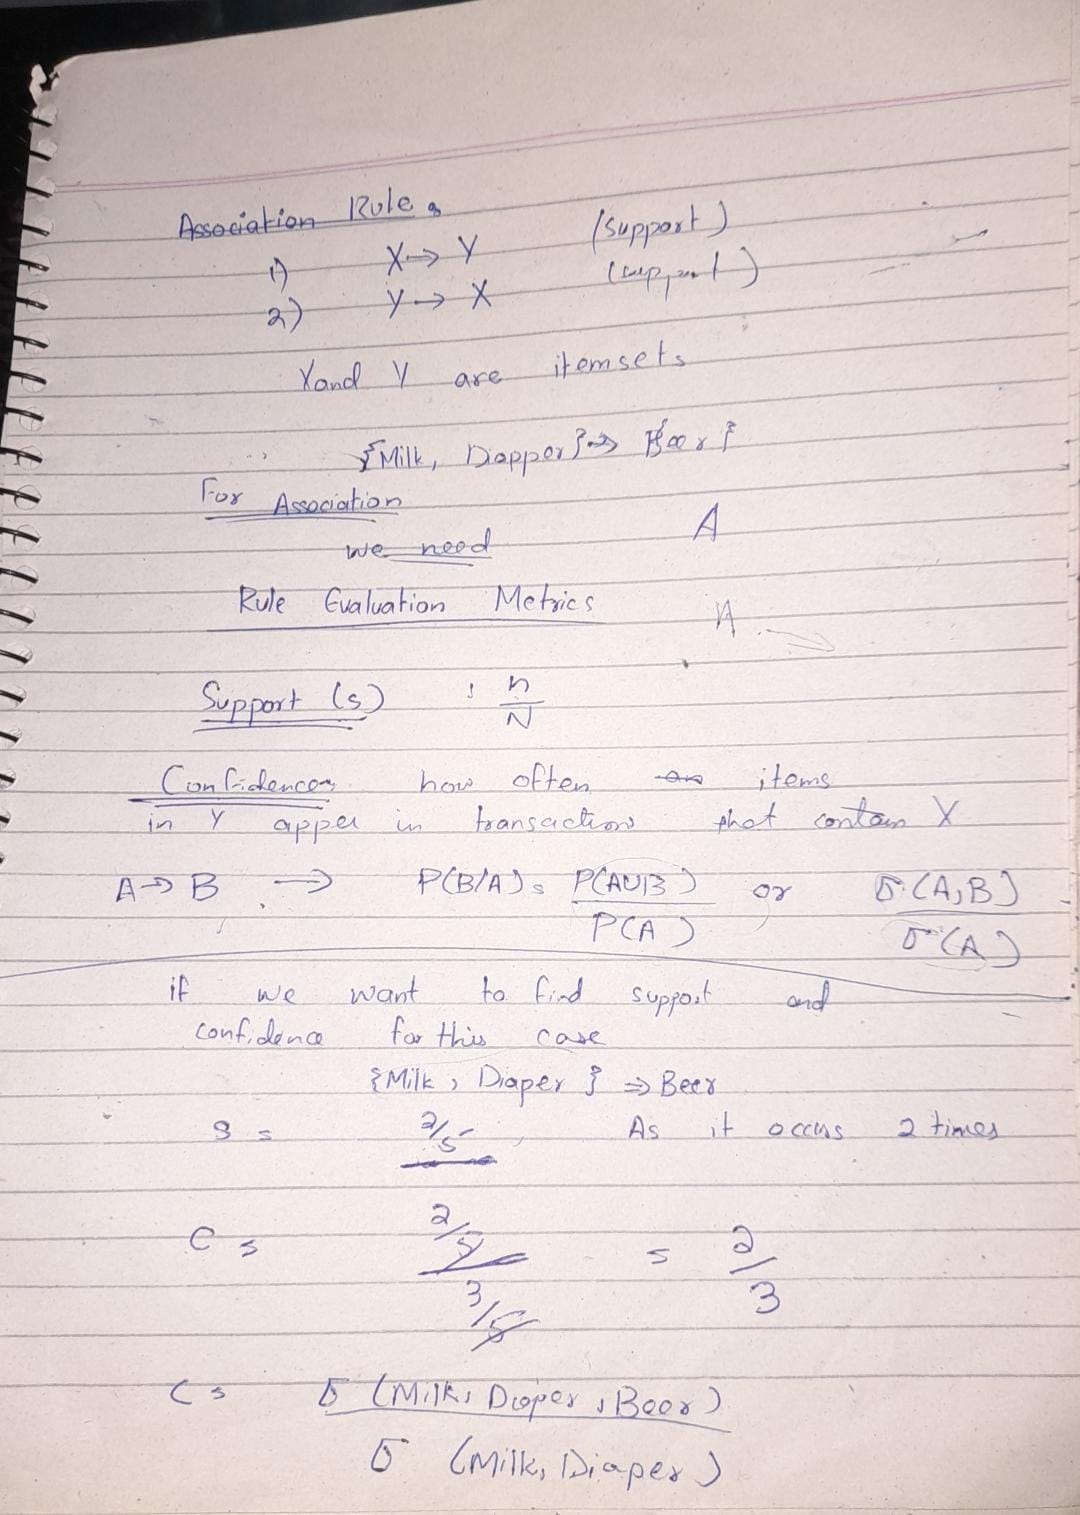 Association Rules
1) X → Y (support)
2) Y → X (support)
X and Y are itemsets
{Milk, Dapper} → Beer}
For Association
we need A
Rule Evaluation Metrics
A
Support (s) : n/N
Confidence: how often items
in Y apper in transactions that contain X
A → B → P(B/A) = P(A∪B)/P(A) or σ(A,B)/σ(A)
if we want to find support and
confidence for this case
{Milk, Diaper} ⇒ Beer
S = 2/5, As it occus 2 times
C = 2/5 / 3/5 = 2/3
C = σ (Milk, Diaper, Beer)
σ (Milk, Diaper)